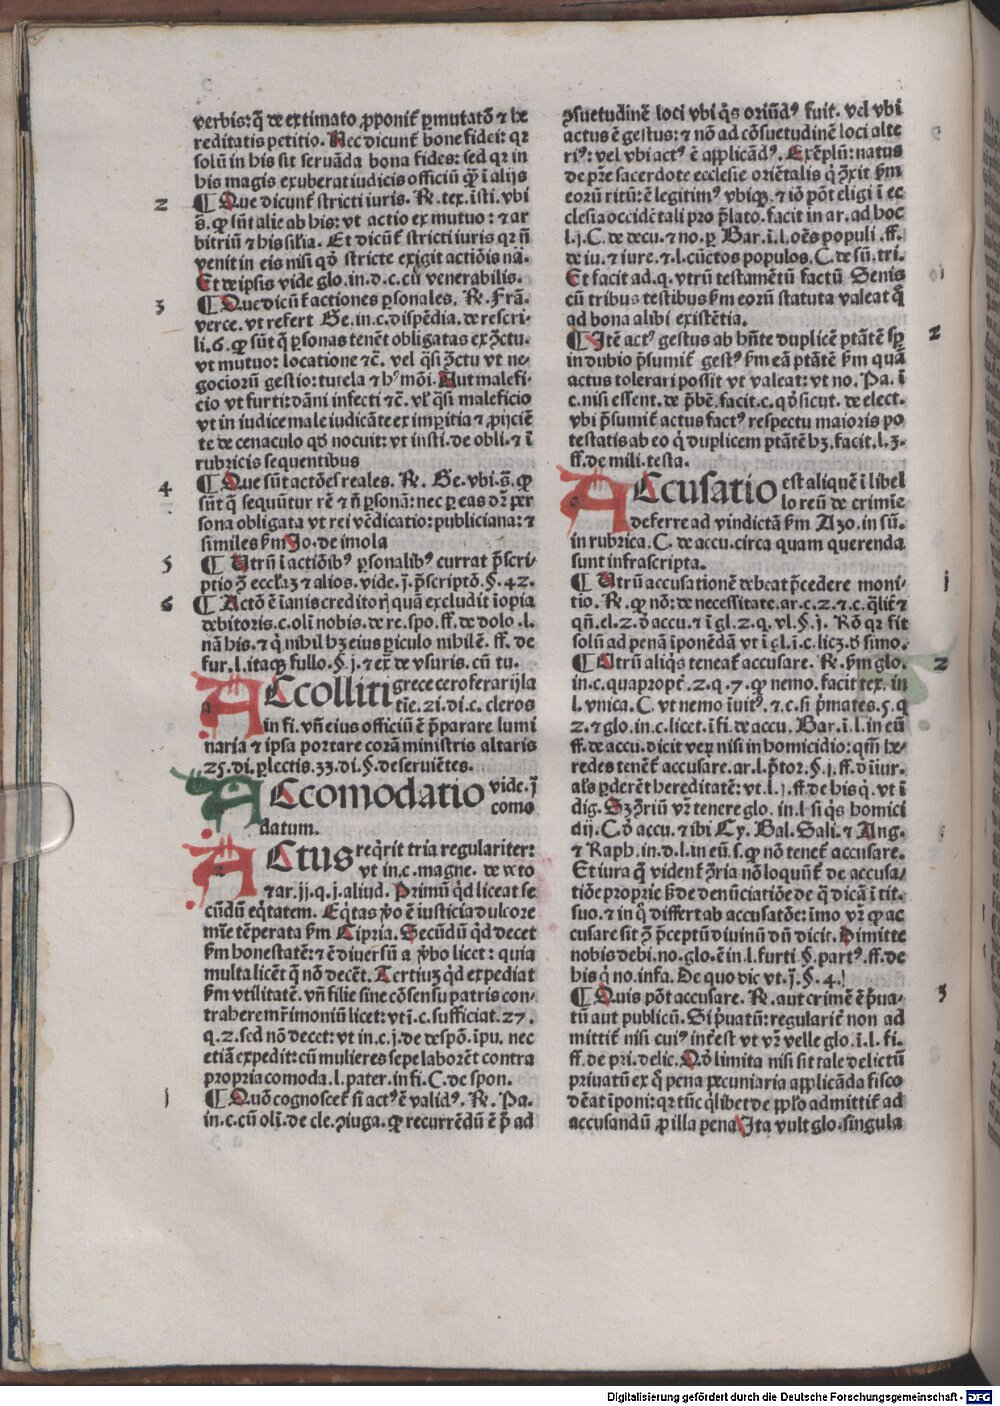 verbis: q̄ de extimato ꝓponit᷑ ꝑmutatō ⁊ he
reditatis petitio. Nec dicunt᷑ bone fidei: qꝛ
solū in his sit seruāda bona fides: sed qꝛ in
his magis exuberat iudicis officiū ꝙ̄ ī alijs
2 ¶ Que dicunt᷑ stricti iuris. R̷. tex. isti. vbi
s̄. ꝙ sūt alie ab his: vt actio ex mutuo: ⁊ ar
bitriū ⁊ his silia. Et dicūt᷑ stricti iuris qꝛ n̄
venit in eis nisi qd̄ stricte exigit actiōis nā.
Et de ipsis vide glo. in. d. c. cū venerabilis.
3 ¶ Que dicūt᷑ actiones ꝑsonales. R̷. Frā.
verce. vt refert Ge. in. c. dispēdia. de rescri-
li. 6. ꝙ sūt q̄ ꝑsonas tenēt obligatas ex ꝯctu.
vt mutuo: locatione ⁊c̄. vel q̄si ꝯctu vt ne-
gociorū gestio: tutela ⁊ hꝰ mōi. Aut malefi-
cio vt furti: dāni infecti ⁊c̄. vl̓ q̄si maleficio
vt in iudice male iudicāte ex imꝑitia ⁊ ꝓijciē
te de cenaculo qd̄ nocuit: vt insti. de obli. ⁊ ī
rubricis sequentibus
4 ¶ Que sūt actōes reales. R̷. Ge. vbi. s̄. ꝙ
sūt q̄ sequūtur rē ⁊ n̄ ꝑsonā: nec ꝑ eas dr̄ ꝑer
sona obligata vt rei vēdicatio: publiciana: ⁊
similes ẜm Jo. de imola
5 ¶ Utrū ī actiōibꝰ ꝑsonalibꝰ currat p̄scri-
ptio ꝯ̄ eccl̓aꝫ ⁊ alios. vide. j̄. p̄scriptō. §. 42.
6 ¶ Actō ē īanis creditorꝭ quā excludit īopia
debitoris. c. oli nobis. de re. spo. ff. de dolo. l.
nā his. ⁊ q̇ nibil hꝫ eius ꝑiculo nibil ē. ff. de
fur. l. itaqꝫ fullo. §. j. ⁊ ex̄ de vsuris. cū tu.
ACcolliti grece ceroferarij la
tie. 21. di. c. cleros
in fi. vn̄ eius officiū ē p̄parare lumi
naria ⁊ ipsa portare corā ministris altaris
25. di. ꝑlectis. 33. di. §. deseruiētes.
ACcomodatio vide. j̄
como
datum.
ACtus req̇rit tria regulariter:
vt in. c. magne. de voto
⁊ ar. jj. q. j. aliud. Primū q̇d liceat se
cūdū eq̇tatem. Eq̇tas v̓o ē iusticia dulcore
mīe tēperata ẜm Cipria. Secūdū q̇d decet
ẜm honestatē: ⁊ ē diuersū a v̓bo licet: quia
multa licēt q̄ nō decēt. Tertiuꝫ q̇d expediat
ẜm vtilitatē. vn̄ filie sine cōsensu patris con-
trahere mr̄imoniū licet: vt ī. c. sufficiat. 27.
q. 2. sed nō decet: vt in. c. j. de despō. īpu. nec
etiā expedit: cū mulieres sepe laborēt contra
propria comoda. l. pater. in fi. C. de spon.
1 ¶ Quō cognoscet᷑ si actꝰ ē validꝰ. R̷. Pa.
in. c. cū oli. de cle. ꝯiuga. ꝙ recurrēdū ē p̄ ad
ꝯsuetudinē loci vbi q̇s oriūdꝰ fuit. vel vbi
actus ē gestus: ⁊ nō ad cōsuetudinē loci alte
riꝰ: vel vbi actꝰ ē applicādꝰ. Exēplū: natus
de p̄re sacerdote ecclesie oriētalis q̇ ꝯ̄xit ẜm
eorū ritū: ē legitimꝰ vbiqꝫ. ⁊ iō pōt eligi ī ec
clesia occidētali pro p̄lato. facit in ar. ad hoc
l. j. C. de decu. ⁊ no. ꝑ Bar. ī. l. oēs populi. ff.
de iu. ⁊ iure. ⁊. l. cūctos populos. C. de sū. tri.
Et facit ad. q. vtrū testamētū factū Senis
cū tribus testibus ẜm eorū statuta valeat q̄
ad bona alibi existētia.
2 ¶ Itē actꝰ gestus ab hn̄te duplicē ptātē sꝑ
in dubio p̄sumit᷑ gestꝰ ẜm eā ptātē ẜm quā
actus tolerari possit vt valeat: vt no. Pa. ī
c. nisi essent. de p̄bē. facit. c. qd̄ sicut. de elect.
vbi p̄sumit᷑ actus factꝰ respectu maioris po
testatis ab eo q̇ duplicem ptātē hꝫ. facit. l. 3.
ff. de mili. testa.
ACcusatio est aliquē ī libel
lo reū de crimīe
deferre ad vindictā ẜm Azo. in sū.
in rubrica. C. de accu. circa quam querenda
sunt infrascripta.
1 ¶ Utrū accusationē debeat p̄cedere moni-
tio. R̷. ꝙ nō: de necessitate. ar. c. 2. ⁊ c. q̄lit̓ ⁊
qn̄. el. 2. d̄ accu. ⁊ ī gl. 2. q. vl. §. j. Rō qꝛ fit
solū ad penā īponēdā vt ī gl. ī. c. licꝫ. d̄ simo.
2 ¶ Utrū aliq̇s teneat᷑ accusare. R̷. ẜm glo.
in. c. quapropt̓. 2. q. 7. ꝙ nemo. facit tex. in
l. vnica. C. vt nemo īuitꝰ. ⁊ c. si p̄mates. 5. q
2. ⁊ glo. in. c. licet. ī fi. de accu. Bar. ī. l. in eū
ff. de accu. dicit veꝝ nisi in homicidio: qm̄ he-
redes tenēt᷑ accusare. ar. l. p̄tor. §. j. ff. d̄ īiur.
al̓s ꝑderēt hereditatē: vt. l. j. ff. de his q̇. vt ī
dig. Sꝫ ꝯ̄riū vr̄ tenere glo. in. l. si q̇s homici
dij. C. d̄ accu. ⁊ ibi Cy. Bal. Sali. ⁊ Ang.
⁊ Raph. in. d. l. in eū. s. ꝙ nō tenet᷑ accusare.
Et iura q̄ vident᷑ ꝯ̄ria nō loquūt᷑ de accusa/
tiōe proprie s̄ de denūciatiōe de q̄ dicā ī tit.
suo. ⁊ in q̇ differt ab accusatōe: īmo vr̄ ꝙ ac
cusare sit ꝯ̄ p̄ceptū diuinū dū dicit. Dimitte
nobis debi. no. glo. ē in. l. furti. §. partꝰ. ff. de
his q̇ no. infa. De quo dic vt. j̄. §. 4.
3 ¶ Quis pōt accusare. R̷. aut crimē ē p̄ua-
tū aut publicū. Si p̄uatū: regularit̓ non ad
mittit᷑ nisi cuiꝰ int̓est vt vr̄ velle glo. ī. l. fi.
ff. de pri. delic. Qd̄ limita nisi sit tale delictū
priuatū ex q̇ pena pecuniaria applicāda fisco
d̄eat īponi: qꝛ tūc q̇libet de pplo admittit᷑ ad
accusandū ꝓ illa pena. Ita vult glo. singula
Digitalisierung gefördert durch die Deutsche Forschungsgemeinschaft - DFG